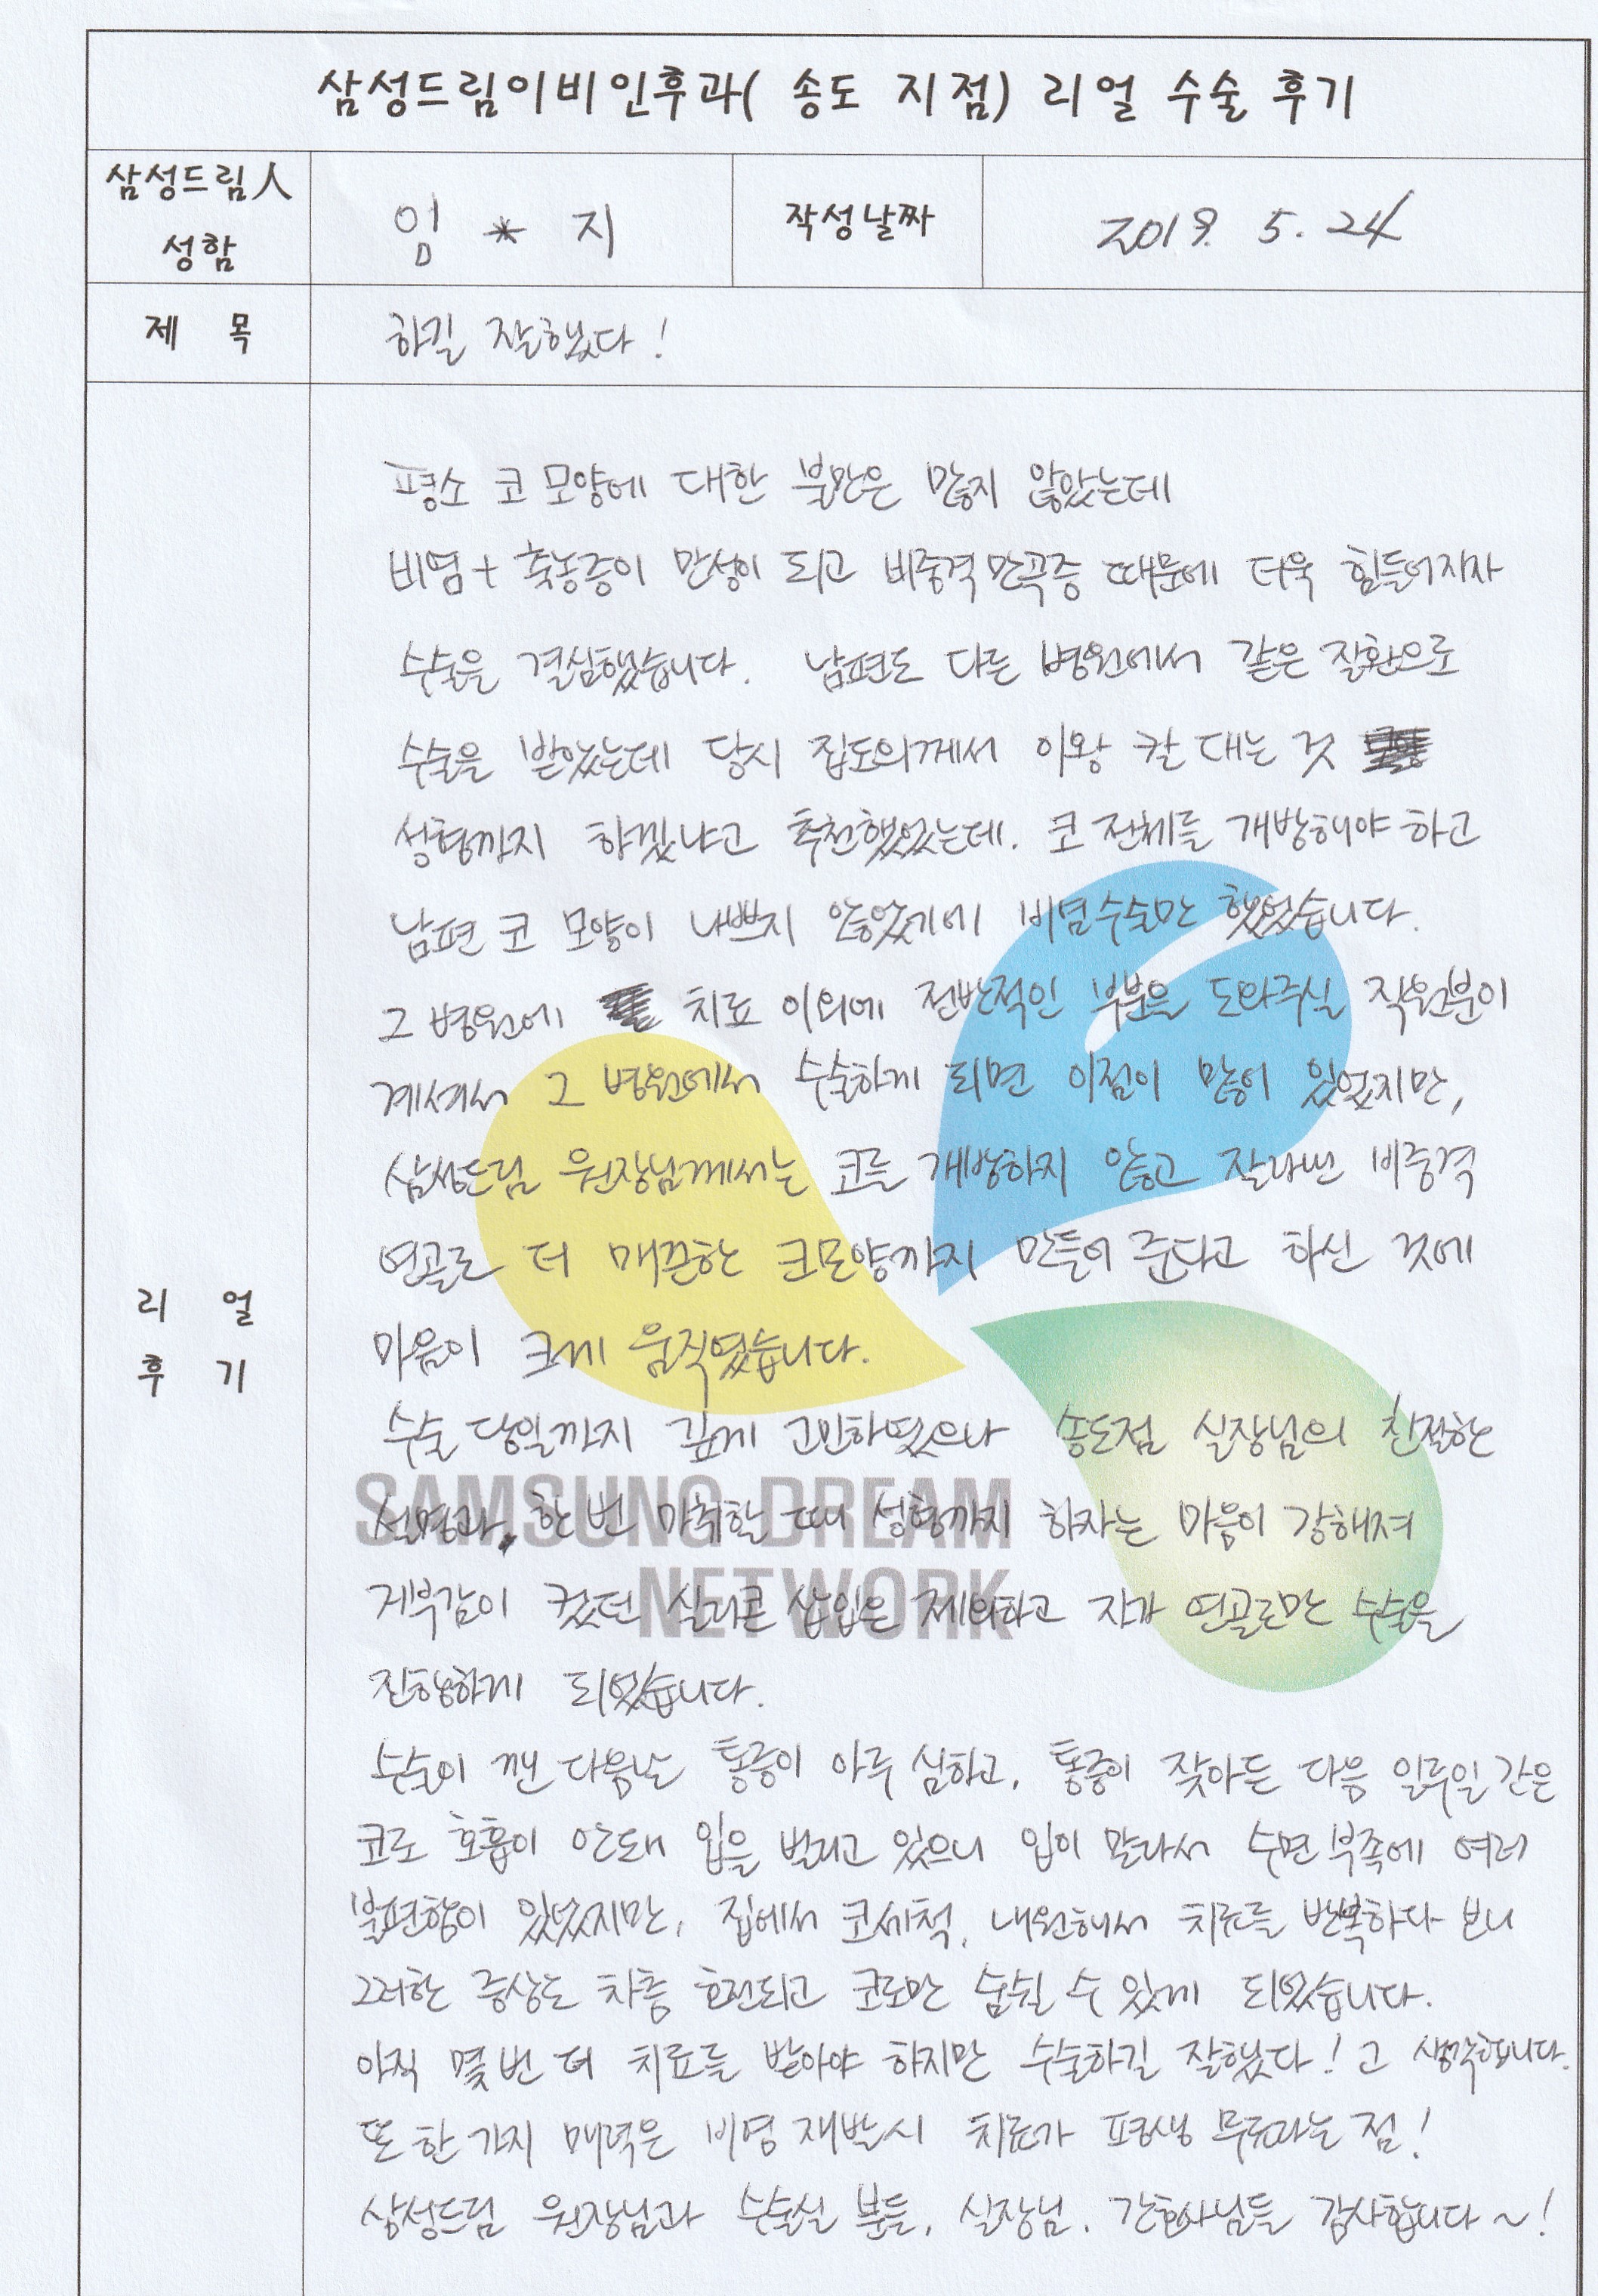 삼성드림이비인후과( 송도 지점) 리얼 수술 후기
삼성드림人
성함
임 * 지
작성날짜
2019. 5. 24
제 목
하길 잘했다!
평소 코 모양에 대한 불만은 많지 않았는데
비염+축농증이 만성이 되고 비중격만곡증 때문에 더욱 힘들어지자
수술을 결심했습니다. 남편도 다른 병원에서 같은 질환으로
수술을 받았는데 당시 집도의께서 이왕 칼 대는 것
성형까지 하겠냐고 추천했었는데. 코 전체를 개방해야 하고
남편 코 모양이 나쁘지 않았기에 비염수술만 했었습니다.
그 병원에 치료 이외에 전반적인 부분을 도와주실 직원분이
계셔서 그 병원에서 수술하게 되면 이점이 많이 있었지만,
삼성드림 원장님께서는 코를 개방하지 않고 잘라낸 비중격
연골로 더 매끈한 코모양까지 만들어 준다고 하신 것에
마음이 크게 움직였습니다.
수술 당일까지 깊게 고민하였으나 송도점 실장님의 친절한
설명과, 한 번 마취할 때 성형까지 하자는 마음이 강해져
거부감이 컸던 실리콘 삽입은 제외하고 자가 연골로만 수술을
진행하게 되었습니다.
수술이 깬 다음날 통증이 아주 심하고, 통증이 잦아든 다음 일주일 간은
코로 호흡이 안돼 입을 벌리고 있으니 입이 말라서 수면부족에 여러
불편함이 있었지만, 집에서 코세척, 내원해서 치료를 반복하다 보니
그러한 증상도 차츰 호전되고 코로만 숨쉴 수 있게 되었습니다.
아직 몇번 더 치료를 받아야 하지만 수술하길 잘했다! 고 생각합니다.
또 한가지 매력은 비염 재발시 치료가 평생 무료라는 점!
삼성드림 원장님과 수술실 분들, 실장님, 간호사님들 감사합니다~!
리 얼
후 기
SAMSUNG DREAM
NETWORK